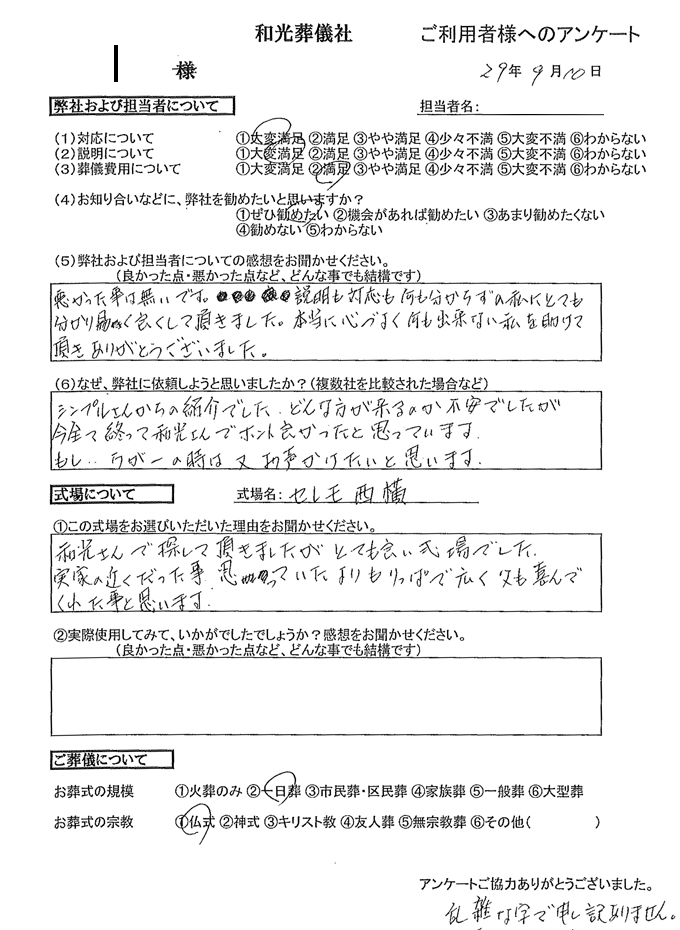 和光葬儀社 ご利用者様へのアンケート
様
29年 9月10日
弊社および担当者について
担当者名:
(1)対応について ①大変満足 ②満足 ③やや満足 ④少々不満 ⑤大変不満 ⑥わからない
(2)説明について ①大変満足 ②満足 ③やや満足 ④少々不満 ⑤大変不満 ⑥わからない
(3)葬儀費用について ①大変満足 ②満足 ③やや満足 ④少々不満 ⑤大変不満 ⑥わからない
(4)お知り合いなどに、弊社を勧めたいと思いますか?
①ぜひ勧めたい ②機会があれば勧めたい ③あまり勧めたくない
④勧めない ⑤わからない
(5)弊社および担当者についての感想をお聞かせください。
(良かった点・悪かった点など、どんな事でも結構です)
悪かった事は無いです。説明も対応も何も分からずの私にとても
分かり易く良くして頂きました。本当に心づよく何も出来ない私を助けて
頂きありがとうございました。
(6)なぜ、弊社に依頼しようと思いましたか?(複数社を比較された場合など)
シンプルさんからの紹介でした.どんな方が来るのか不安でしたが
今全て終って和光さんでホント良かったと思っています.
もし‥万が一の時は又お声かけたいと思います.
式場について
式場名: セレモ西横
①この式場をお選びいただいた理由をお聞かせください。
和光さんで探して頂きましたがとても良い式場でした.
実家の近くだった事 思っていたよりもりっぱで広く父も喜んで
くれた事と思います.
②実際使用してみて、いかがでしたでしょうか?感想をお聞かせください。
(良かった点・悪かった点など、どんな事でも結構です)
ご葬儀について
お葬式の規模 ①火葬のみ ②一日葬 ③市民葬・区民葬 ④家族葬 ⑤一般葬 ⑥大型葬
お葬式の宗教 ①仏式 ②神式 ③キリスト教 ④友人葬 ⑤無宗教葬 ⑥その他( )
アンケートご協力ありがとうございました。
乱雑な字で申し訳ありません。